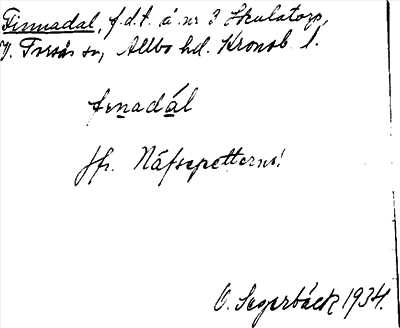 Finnadal, f.d.t. å nr 3 Skulatorp,
V. Torsås sn, Allbo hd. Kronob. l.
fenadál
Jfr. Näfsepetterns!
O. Segerbäck 1934.